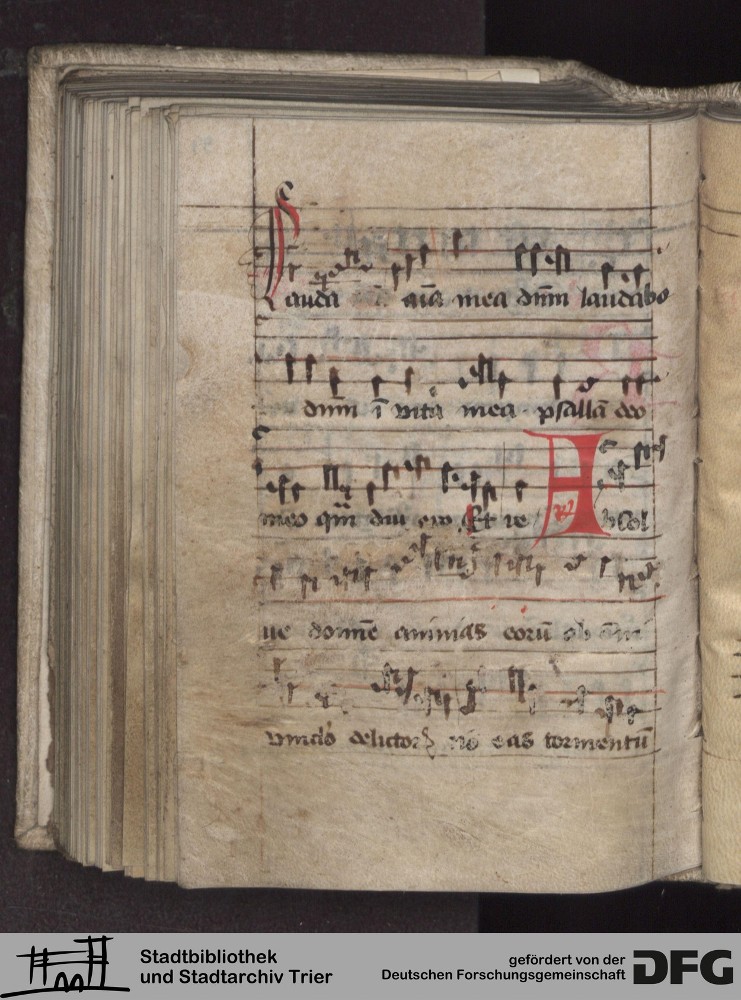 Lauda aīa mea dn̄m laudabo
dn̄m ī vita mea psallā deo
meo qm̄ diu ero Et ie Absol
ue domīe animas eorū ab
vinclo delictoꝝ eas tormentū
Stadtbibliothek
und Stadtarchiv Trier
gefördert von der
Deutschen Forschungsgemeinschaft
DFG